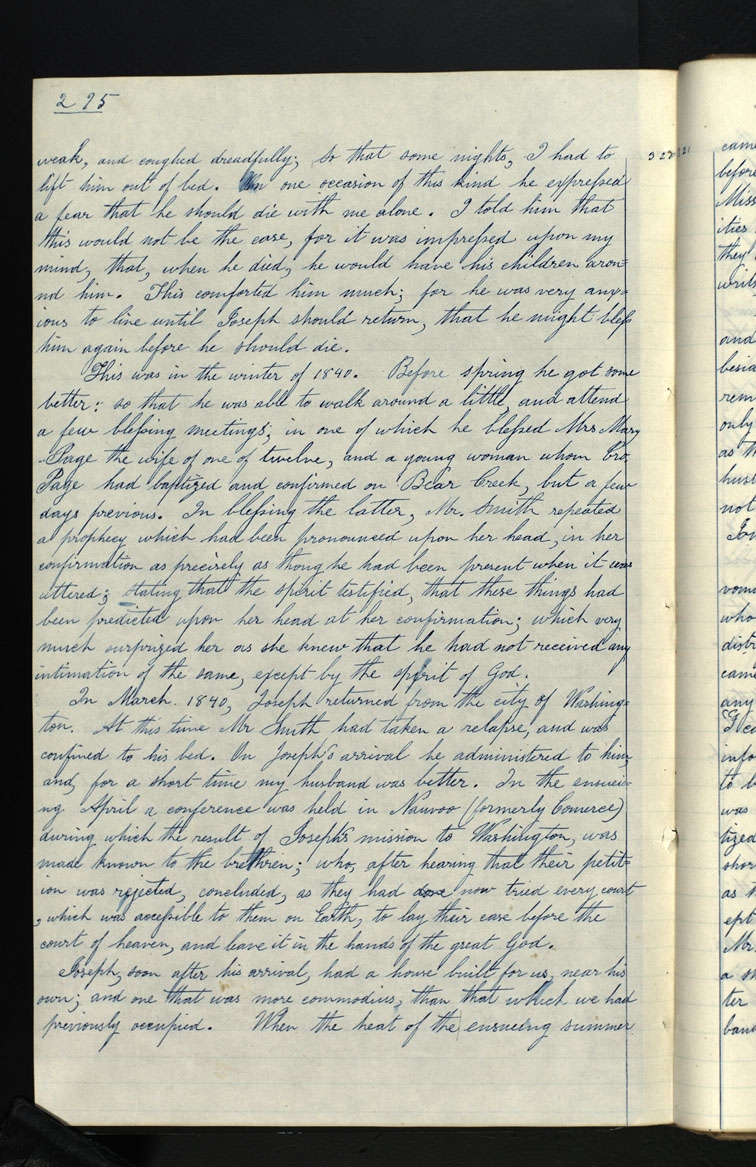 295
weak, and coughed dreadfully; so that some nights, I had to
lift him out of bed. On one occasion of this kind he expressed
a fear that he should die with me alone. I told him that
this would not be the case, for it was impressed upon my
mind, that, when he died, he would have his children arou=
nd him. This comforted him much; for he was very anx=
ious to live until Joseph should return, that he might bless
him again before he should die.
This was in the winter of 1840. Before spring he got some
better: so that he was able to walk around a little and attend
a few blessing meetings; in one of which he blessed Mrs Mary
-Page the wife of one of twelve, and a young woman whom bro.
Page had baptized and confirmed on Bear Creek, but a few
days previous. In blessing the latter, Mr. Smith repeated
a prophecy which had been pronounced upon her head, in her
confirmation as precisely as though he had been present when it was
uttered; stating that the spirit testified, that these things had
been predicted upon her head at her confirmation; which very
much surprized her as she knew that he had not received any
intimation of the same, except by the spirit of God.
In March. 1840, Joseph returned from the city of Washing=
ton. At this time Mr Smith had taken a relapse, and was
confined to his bed. On Joseph's arrival he administered to him,
and, for a short time my husband was better. In the ensuei=
ng April a conference was held in Nauvoo (formerly Comerce)
during which the result of Joseph's mission to Washington, was
made known to the brethren; who, after hearing that their petit=
ion was rejected, concluded, as they had now tried every court
, which was accessible to them on Earth, to lay their case before the
court of heaven, and leave it in the hands of the great God.
Joseph, soon after his arrival, had a house built for us, near his
own; and one that was more commodius, than that which we had
previously occupied. When the heat of the ensueing summer
came
before
Miss
ities
they
writs
and
besid
rem
only
as th
husb
not
vome
who
distr
came
any
info
to b
was
tized
shor
as t
ept
Mr.
a sh
ter
band